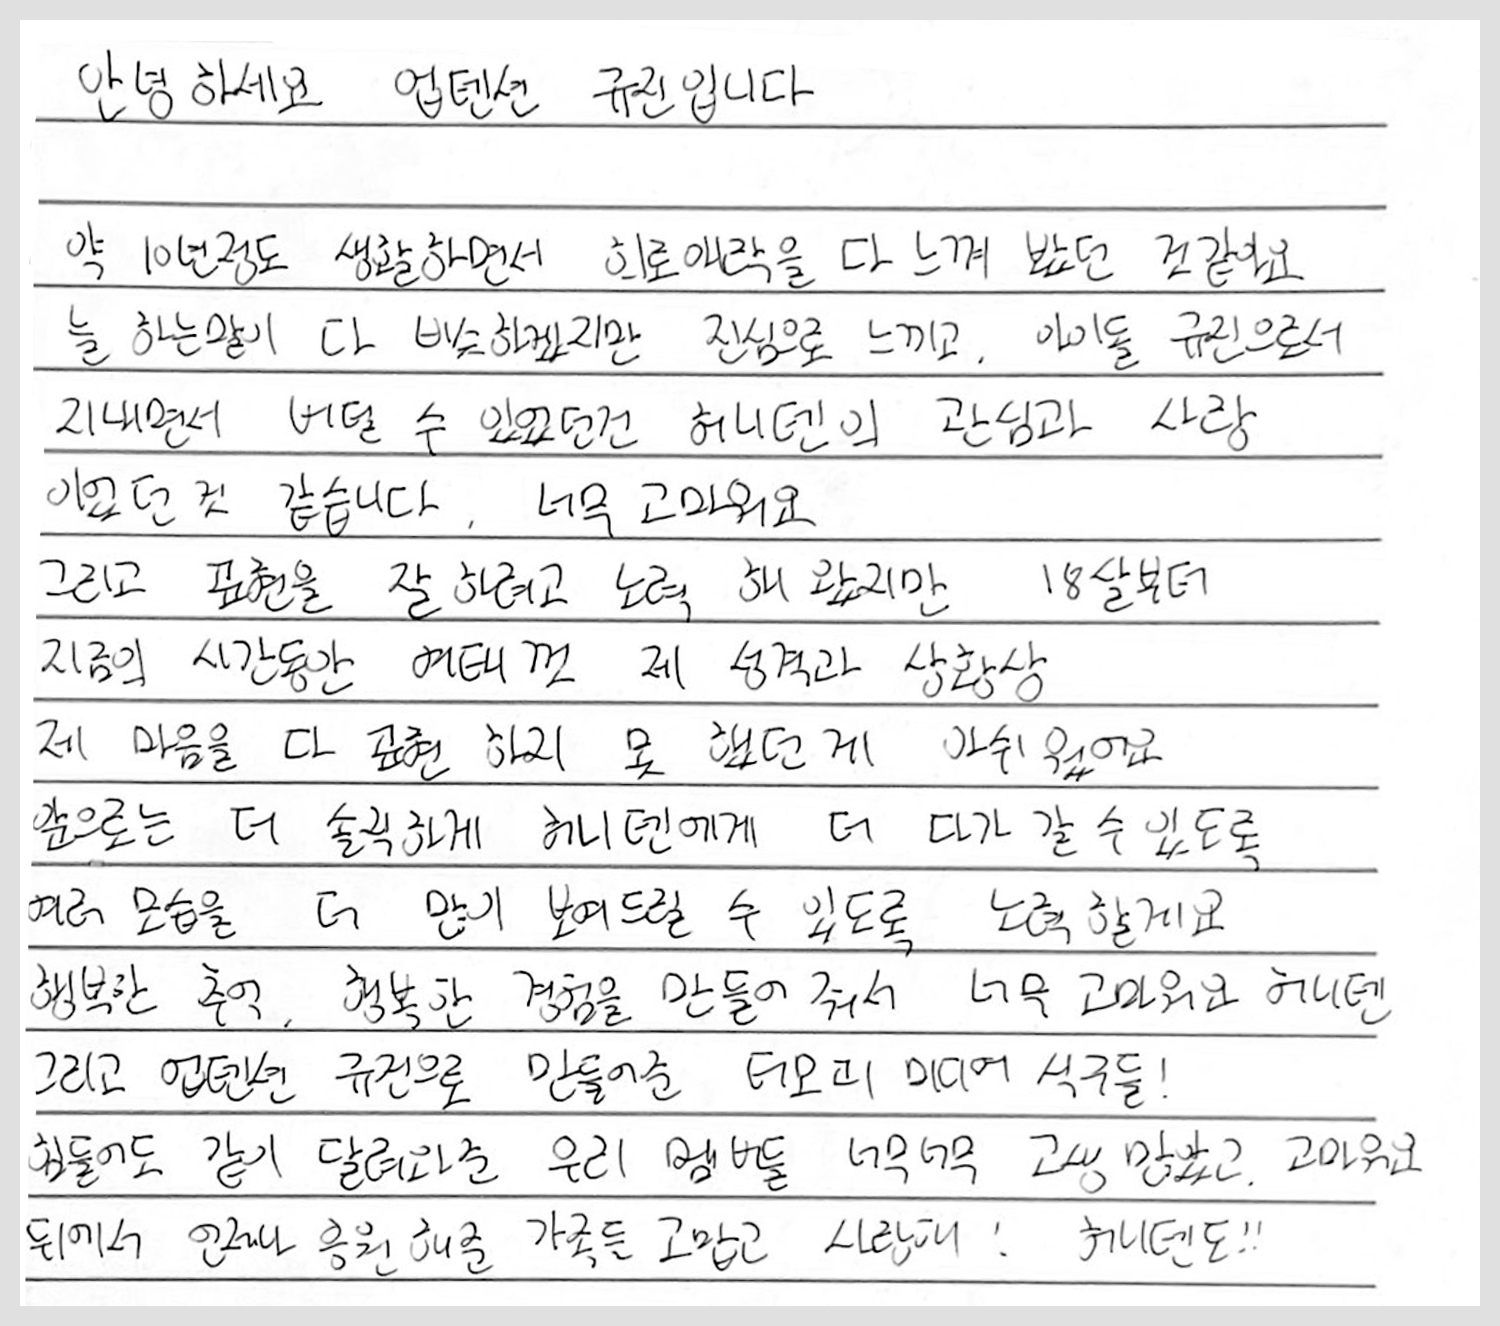 안녕하세요 업텐션 규진입니다
약 10년정도 생활하면서 희로애락을 다 느껴 봤던 것같아요
늘 하는말이 다 비슷하겠지만 진심으로 느끼고, 아이돌 규진으로서
지내면서 버틸 수 있었던건 허니텐의 관심과 사랑
이었던 것 같습니다, 너무 고마워요
그리고 표현을 잘 하려고 노력 해 왔지만 18살부터
지금의 시간동안 여태껏 제 성격과 상황상
제 마음을 다 표현 하지 못 했던 게 아쉬웠어요
앞으로는 더 솔직하게 허니텐에게 더 다가 갈 수 있도록
여러 모습을 더 많이 보여드릴 수 있도록 노력할게요
행복한 추억, 행복한 경험을 만들어 줘서 너무 고마워요 허니텐
그리고 업텐션 규진으로 만들어준 티오피 미디어 식구들!
힘들어도 같이 달려와준 우리 멤버들 너무너무 고생 많았고, 고마워요
뒤에서 언제나 응원해준 가족들 고맙고 사랑해! 허니텐도!!